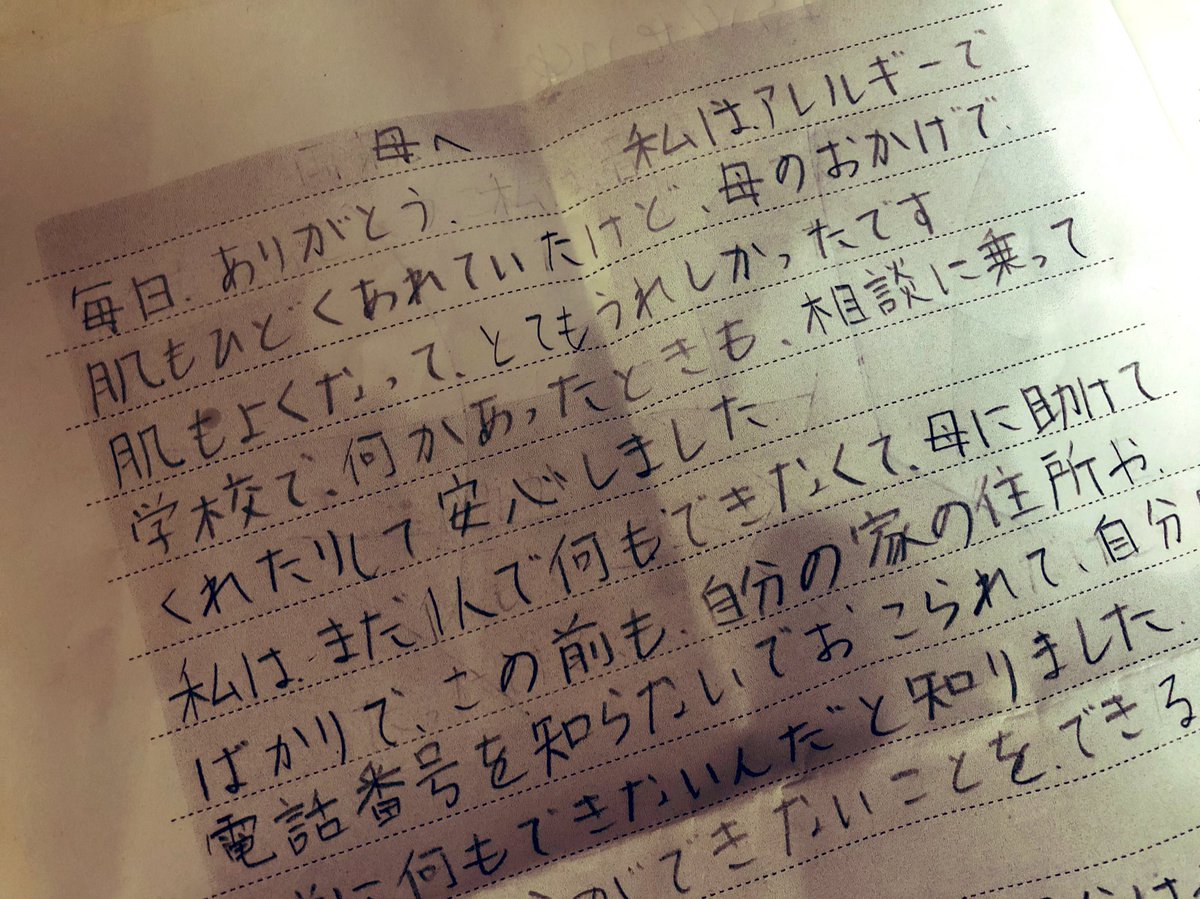 母へ
毎日、ありがとう、私は、アレルギーで
肌もひどくあれていたけど、母のおかげで、
肌もよくなって、とてもうれしかったです
学校で、何かあったときも、相談に乗って
くれたりして安心しました
私は、まだ1人で何もできなくて、母に助けて
ばかりで、この前も、自分の家の住所や、
電話番号を知らないでおこられて、自分
に何もできないんだと知りました、
ができないことを、できる